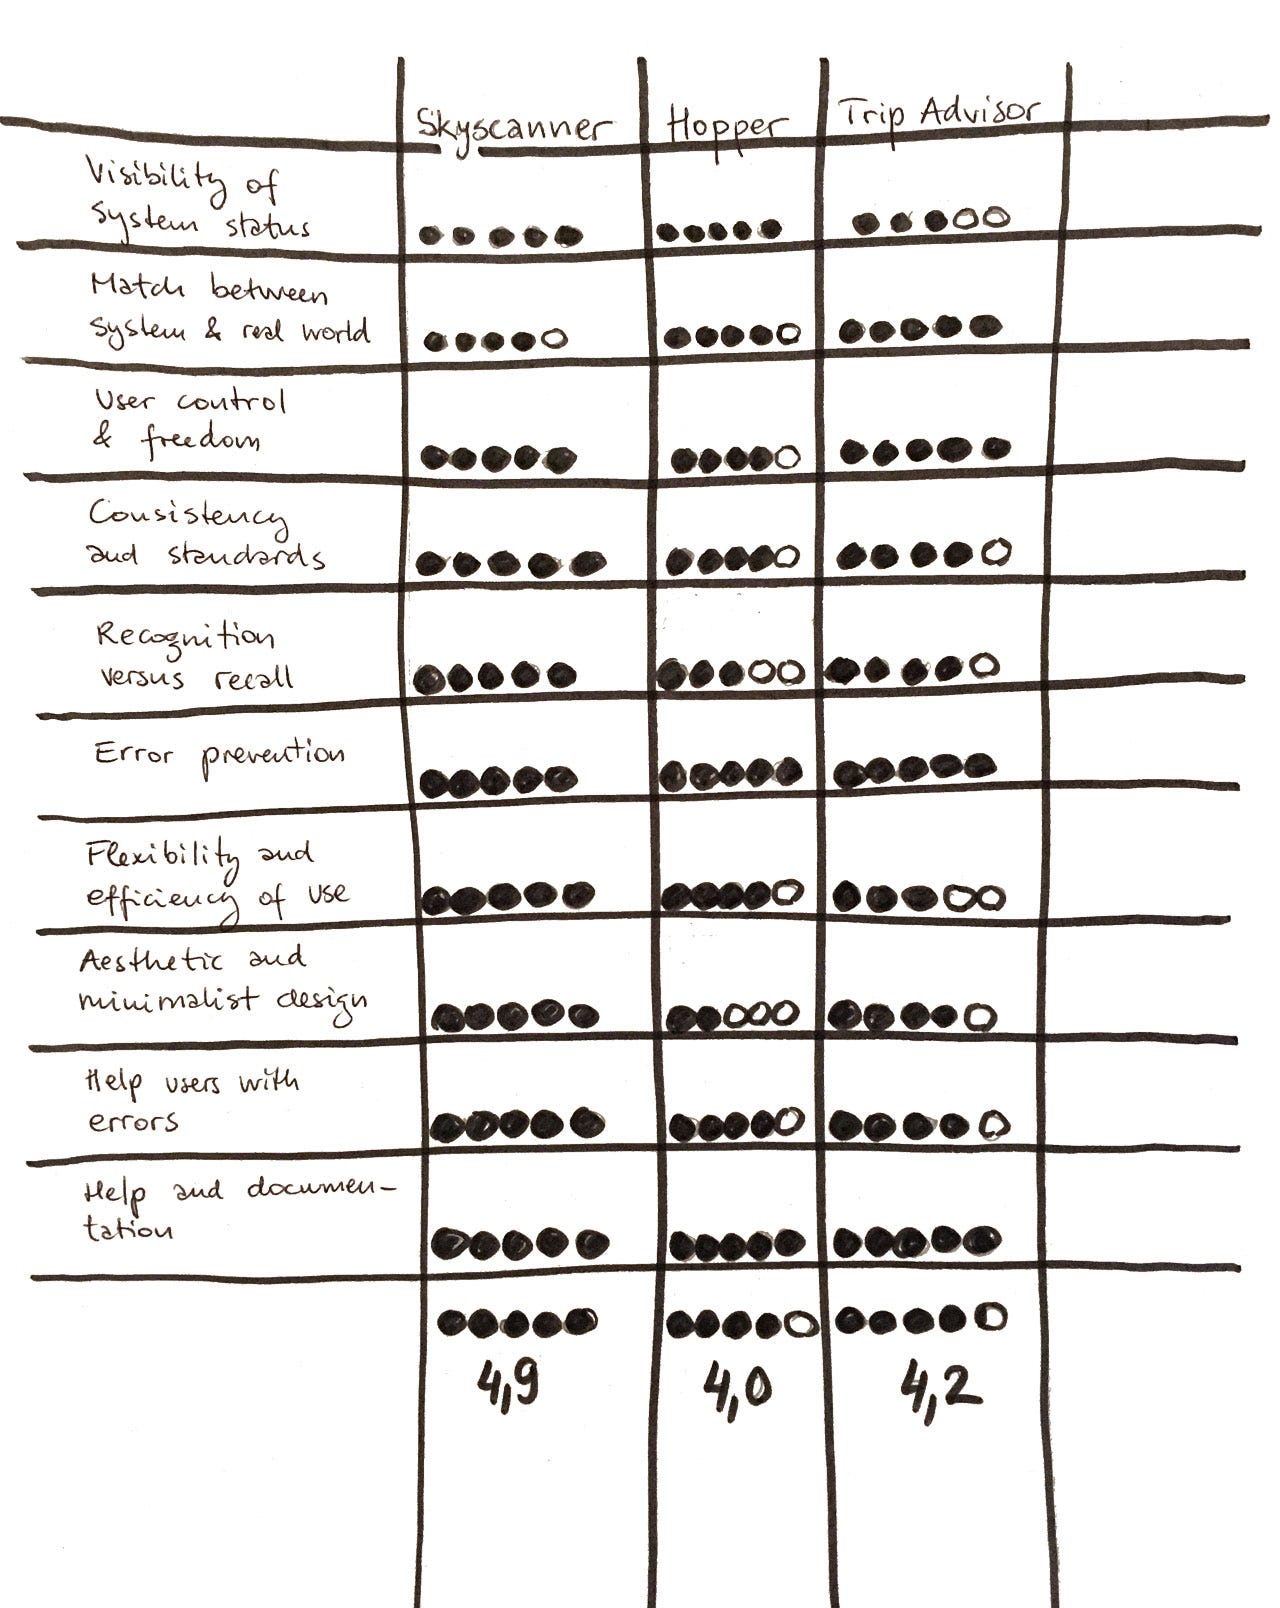 Skyscanner Hopper Trip Advisor
Visibility of
System status
Match between
System & real world
User control
& freedom
Consistency
and standards
Recognition
versus recall
Error prevention
Flexibility and
efficiency of use
Aesthetic and
minimalist design
Help users with
errors
Help and documen-
tation
4,9 4,0 4,2